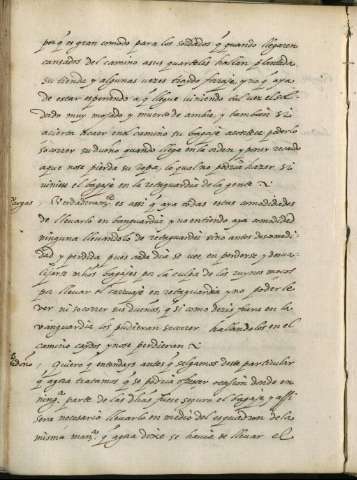 porq̃ es gran comodo para los soldados q̃ quando llegaren
cansados del camino a sus quarteles hallen plantada
su tienda y algunas vezes
de estar esperando a q̃ llegue viniendo el sol
dado muy mojado y muerto de y tambien si
en el camino su bagaje poderlo
socorrer su dueño quando llega en la orden y poner recado
a que no se pierda su ropa, lo qual no podria hazer si
viniese el bagaje en la retaguardia de la gente
Vargas Verdaderamẽte es assi q̃ aya todas estas comodidades
de llevarle en banguardia y no entiendo aya comodidad
ninguna llevandolo de retaguardia sino antes incomodi
dad y perdida pues cada dia se vee en perderse y
muchos bagajes por la culpa de los ruynes moços
por llevar el carruaje en retaguardia y no poderle
ver ni socorrer sus dueños, q̃ si como dezis fuera en la
vanguardia los pudieran socorrer hallandolos en el
camino caydos y no se perdieran
Quiero q̃ entendays antes q̃ salgamos deste particular
q̃ agora tratamos q̃ se podria ofrecer ocasion donde en
ning.ª parte de las dhas fuese seguro el bagaje y assi
sera necesario llevarlo en medio del esquadron de la
misma man.ª q̃ agora dixe se havia de llevar el